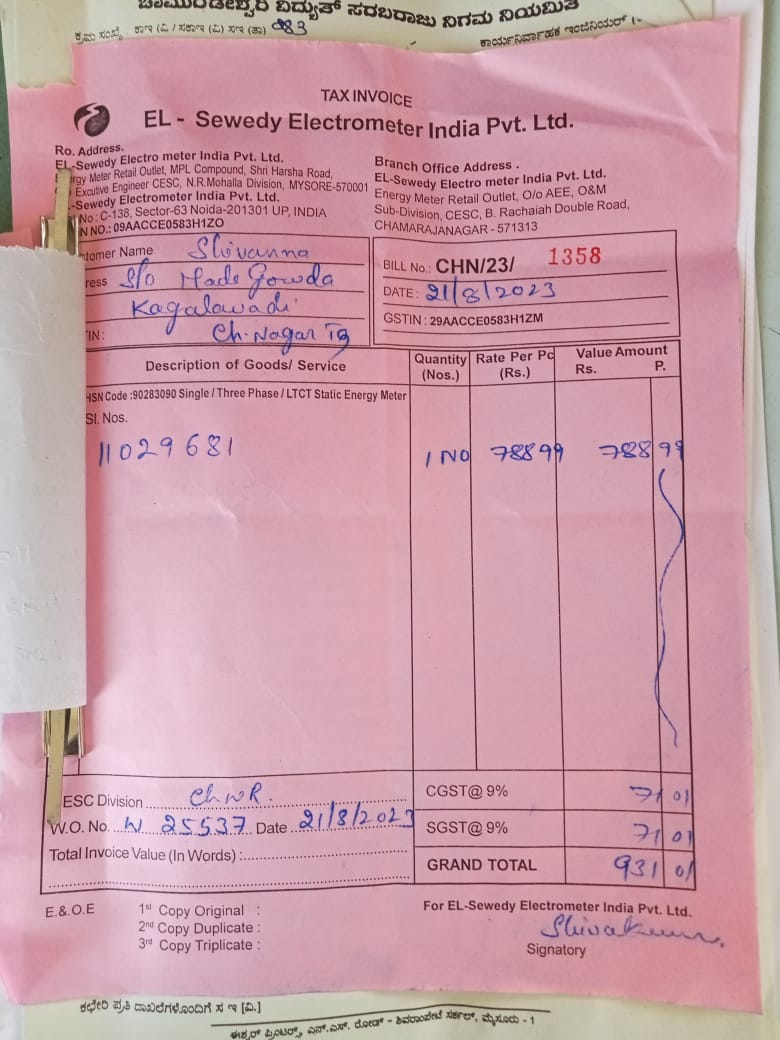 ಚಾಮುಂಡೇಶ್ವರಿ ವಿದ್ಯುತ್ ಸರಬರಾಜು ನಿಗಮ ನಿಯಮಿತ
ಕ್ರಮ ಸಂಖ್ಯೆ: ಕಾಇ (ವಿ / ಸಕಾಇ (ವಿ) ಸಇ (ತಾ) 983
ಕಾರ್ಯನಿರ್ವಾಹಕ ಇಂಜಿನಿಯರ್
TAX INVOICE
EL - Sewedy Electrometer India Pvt. Ltd.
Ro. Address.
EL-Sewedy Electro meter India Pvt. Ltd.
Energy Meter Retail Outlet, MPL Compound, Shri Harsha Road,
Excutive Engineer CESC, N.R.Mohalla Division, MYSORE-570001
-Sewedy Electrometer India Pvt. Ltd.
No : C-138, Sector-63 Noida-201301 UP, INDIA
N NO.: 09AACCE0583H1ZO
Branch Office Address .
EL-Sewedy Electro meter India Pvt. Ltd.
Energy Meter Retail Outlet, O/o AEE, O&M
Sub-Division, CESC, B. Rachaiah Double Road,
CHAMARAJANAGAR - 571313
tomer Name Shivanna
ress S/o Made Gowda
Kagalawadi
IN: Ch. Nagar Tq
BILL No.: CHN/23/ 1358
DATE : 21/8/2023
GSTIN : 29AACCE0583H1ZM
Description of Goods/ Service Quantity (Nos.) Rate Per Pc (Rs.) Value Amount Rs. P.
HSN Code :90283090 Single / Three Phase / LTCT Static Energy Meter
Sl. Nos.
11029681 1 NO 788 99 788 99
ESC Division ChNR. CGST@ 9% 71 01
W.O. No. W 25537 Date 21/8/2023 SGST@ 9% 71 01
Total Invoice Value (In Words) : GRAND TOTAL 931 01
E.& O.E 1st Copy Original :
2nd Copy Duplicate :
3rd Copy Triplicate :
For EL-Sewedy Electrometer India Pvt. Ltd.
Signatory
ಕಛೇರಿ ಪ್ರತಿ ದಾಖಲೆಗಳೊಂದಿಗೆ ಸ ಇ [ವಿ.]
ಈಶ್ವರ್ ಪ್ರಿಂಟರ್ಸ್, ಎನ್.ಎಸ್. ರೋಡ್ - ಶಿವರಾಂಪೇಟೆ ಸರ್ಕಲ್, ಮೈಸೂರು - 1